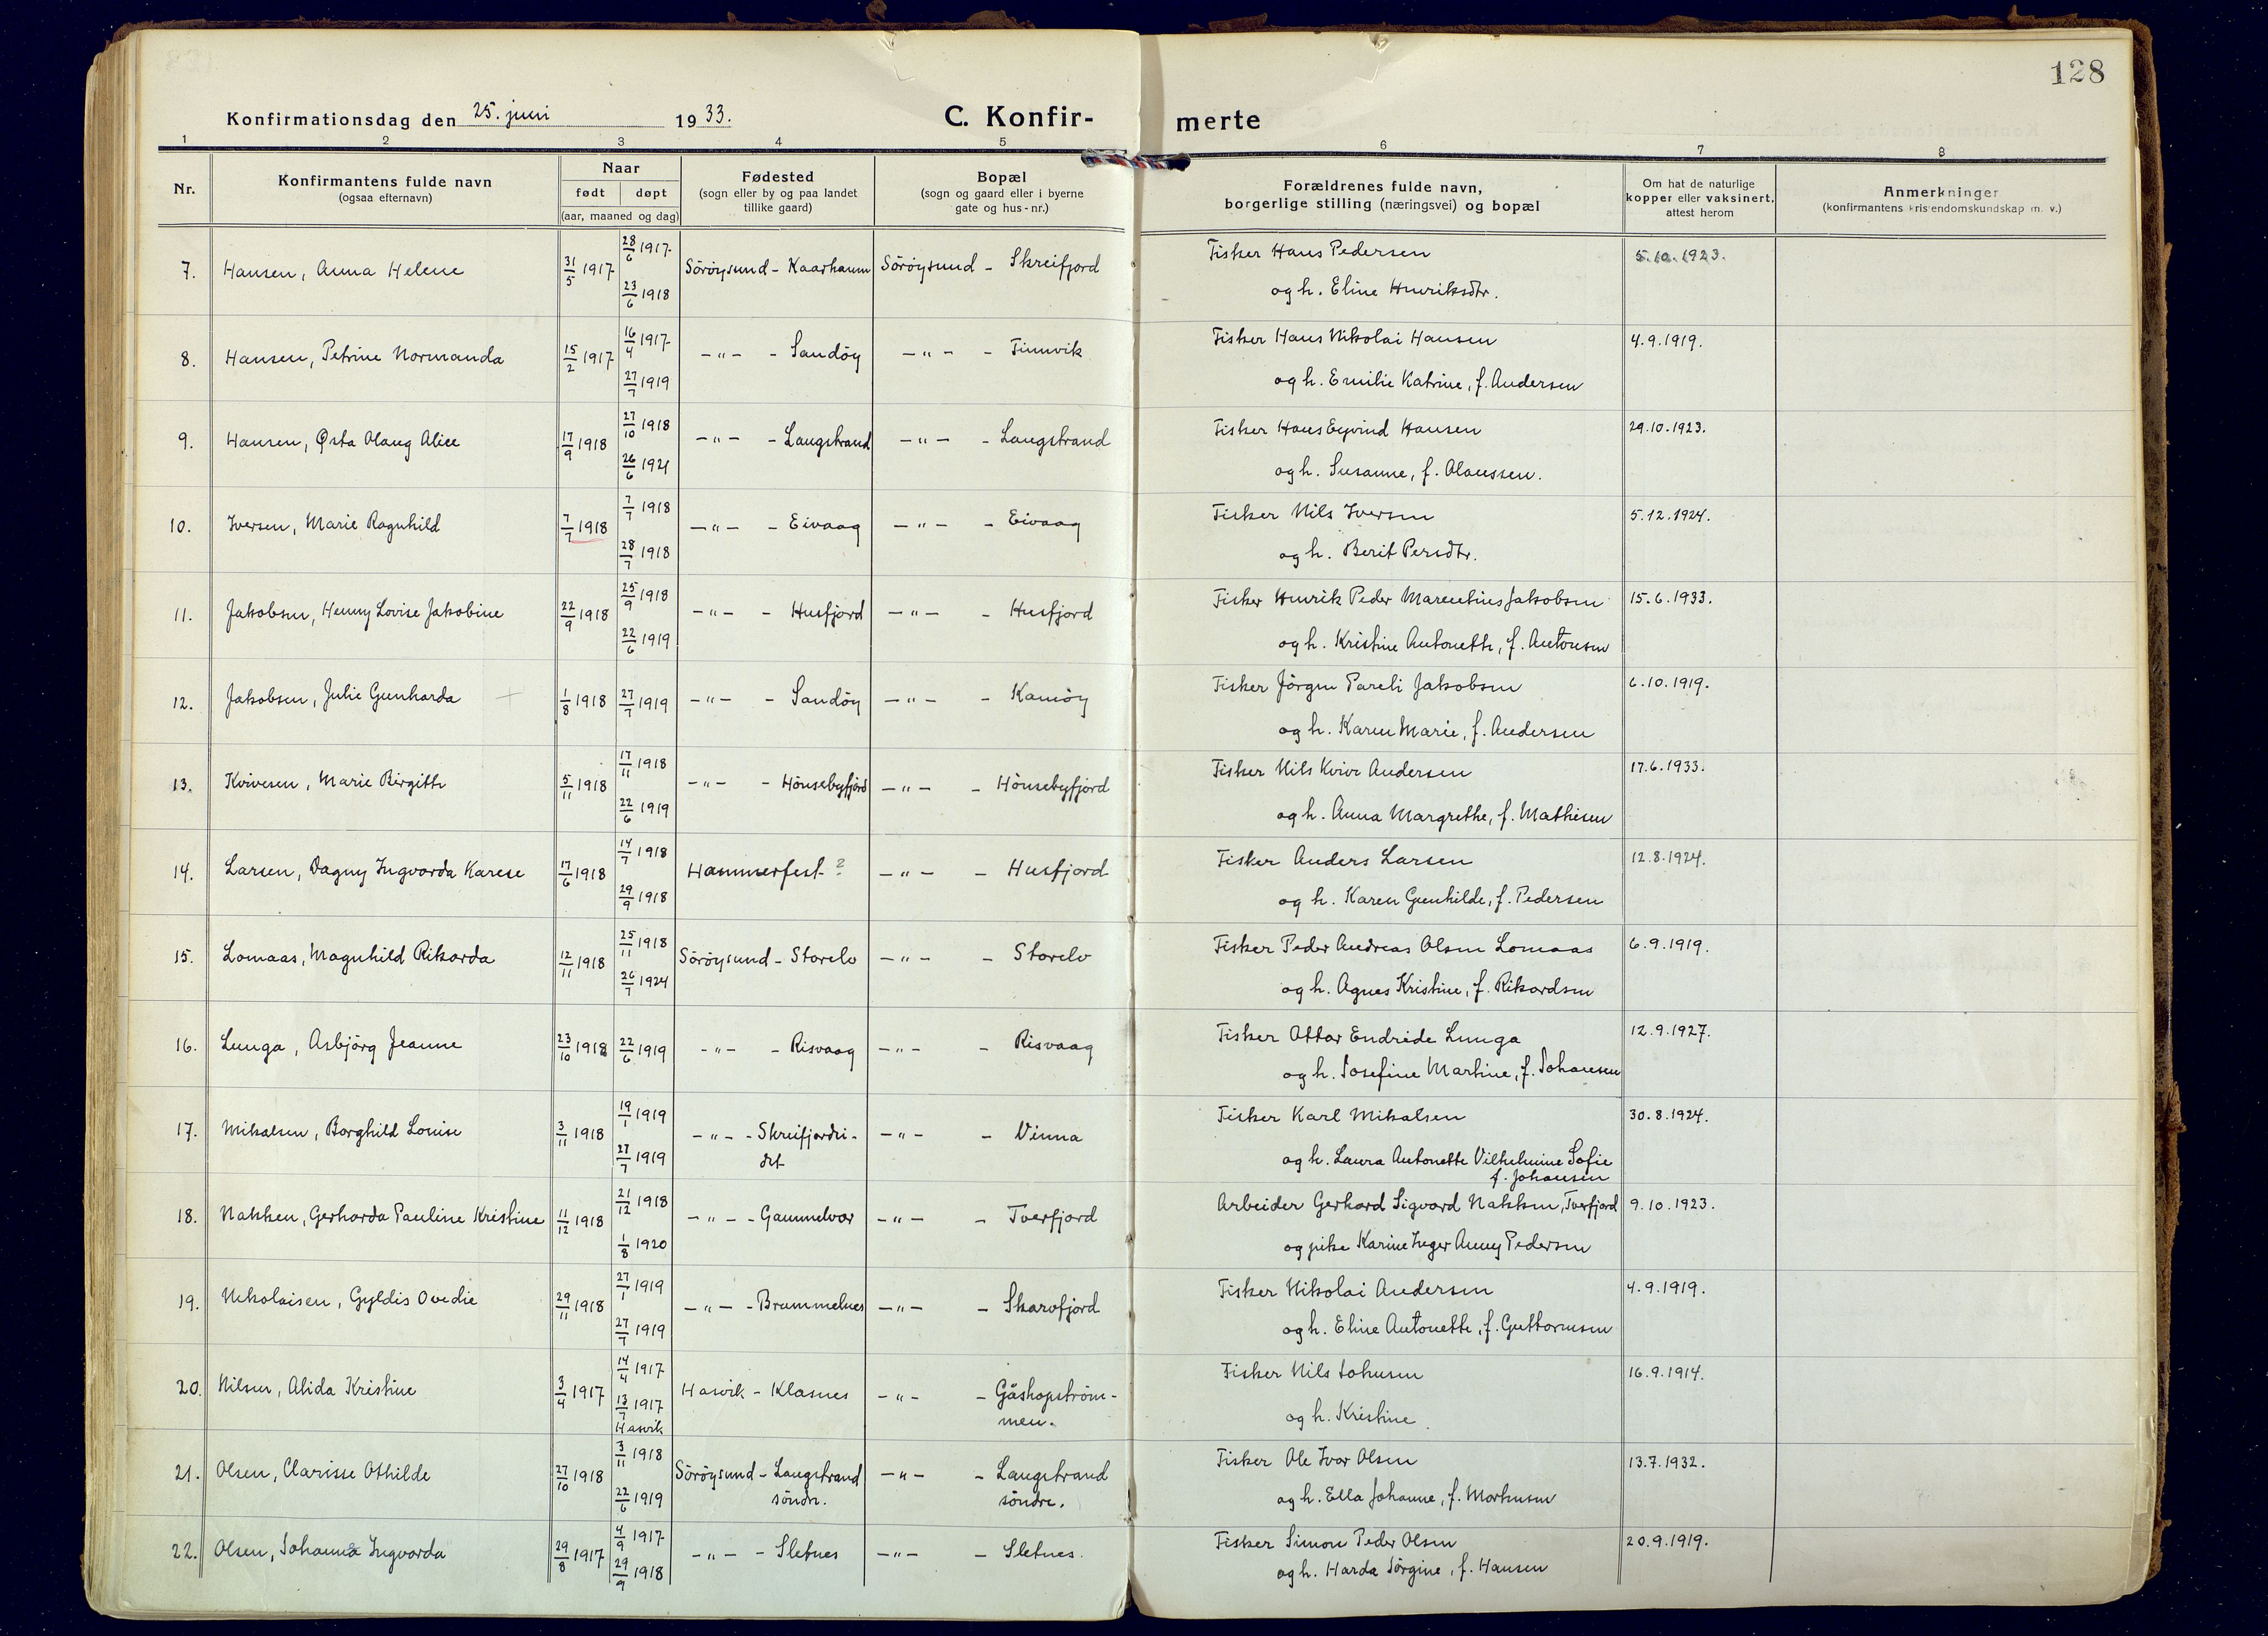 128
Konfirmationsdag den 25. juni 1933.
C. Konfir-
merte
1 2 3 4 5 6 7 8
Nr.
Konfirmantens fulde navn
(ogsaa efternavn)
Naar
født døpt
(aar, maaned og dag)
Fødested
(sogn eller by og paa landet
tillike gaard)
Bopæl
(sogn og gaard eller i byerne
gate og hus-nr.)
Forældrenes fulde navn,
borgerlige stilling (næringsvei) og bopæl
Om hat de naturlige
kopper eller vaksinert,
attest herom
Anmerkninger
(konfirmantens kristendomskundskap m. v.)
7. Hansen, Anna Helene 31/5 1917 28/6 1917 23/6 1918 Söröysund - Kaarhamn Söröysund - Skreifjord Fisker Hans Pedersen 5.10.1923.
og h. Eline Henriksdtr.
8. Hansen, Petrine Normanda 15/2 1917 16/4 1917 27/7 1919 -"- - Sandöy -"- - Finnvik Fisker Hans Nikolai Hansen 4.9.1919.
og h. Emilie Katrine, f. Andersen
9. Hansen, Østa Olaug Alice 17/9 1918 27/10 1918 26/6 1921 -"- - Langstrand -"- - Langstrand Fisker Hans Eyvind Hansen 29.10.1923.
og h. Susanne, f. Olaussen.
10. Iversen, Marie Ragnhild 7/7 1918 7/7 1918 28/7 1918 -"- - Eivaag -"- - Eivaag Fisker Nils Iversen 5.12.1924.
og h. Berit Persdtr.
11. Jakobsen, Henny Lovise Jakobine 22/9 1918 25/9 1918 22/6 1919 -"- - Husfjord -"- - Husfjord Fisker Henrik Peder Marentius Jakobsen 15.6.1933.
og h. Kristine Antonette, f. Antonsen
12. Jakobsen, Julie Gunharda 1/8 1918 27/7 1919 -"- - Sandöy -"- - Kamöy Fisker Jörgen Pareli Jakobsen 6.10.1919.
og h. Karen Marie, f. Andersen
13. Kvivesen, Marie Birgitte 5/11 1918 17/11 1918 22/6 1919 -"- - Hönsebyfjord -"- - Hönsebyfjord Fisker Nils Kvive Andersen 17.6.1933.
og h. Anna Margrethe, f. Mathisen
14. Larsen, Dagny Ingvarda Karese 17/6 1918 14/7 1918 29/9 1918 Hammerfest ? -"- - Husfjord Fisker Anders Larsen 12.8.1924.
og h. Karen Gunhilde, f. Pedersen
15. Lomaas, Magnhild Rikarda 12/11 1918 25/11 1918 26/7 1924 Söröysund - Storelv -"- - Storelv Fisker Peder Andreas Olsen Lomaas 6.9.1919.
og h. Agnes Kristine, f. Rikardsen
16. Lunga, Asbjörg Jeanne 23/10 1918 22/6 1919 -"- - Risvaag -"- - Risvaag Fisker Ottar Endride Lunga 12.9.1927.
og h. Josefine Martine, f. Johansen
17. Mikalsen, Borghild Louise 3/11 1918 19/1 1919 27/7 1919 -"- - Skreifjordei-
det -"- - Vinna Fisker Karl Mikalsen 30.8.1924.
og h. Laura Antonette Vilhelmine Sofie
f. Johansen
18. Nakken, Gerharda Pauline Kristine 11/12 1918 21/12 1918 1/8 1920 -"- - Gammelvær -"- - Tverfjord Arbeider Gerhard Sigvard Nakken, Tverfjord 9.10.1923.
og pike Karine Inger Anny Pedersen
19. Nikolaisen, Gyldis Ovedie 29/11 1918 27/1 1919 27/7 1919 -"- - Brummelnes -"- - Skarvfjord Fisker Nikolai Andersen 4.9.1919.
og h. Eline Antonette, f. Guttormsen
20. Nilsen, Alida Kristine 3/4 1917 14/4 1917 13/7 1917 Hasvik Hasvik - Klasnes -"- - Gåshopström-
men. Fisker Nils Johnsen 16.9.1914.
og h. Kristine
21. Olsen, Clarisse Othilde 27/10 1918 3/11 1918 22/6 1919 Söröysund - Langstrand
söndre. -"- - Langstrand
söndre. Fisker Ole Ivar Olsen 13.7.1932.
og h. Ella Johanne, f. Mortensen
22. Olsen, Johanna Ingvarda 29/8 1917 4/9 1917 29/9 1918 -"- - Sletnes -"- - Sletnes. Fisker Simon Peder Olsen 20.9.1919.
og h. Harda Jörgine, f. Hansen